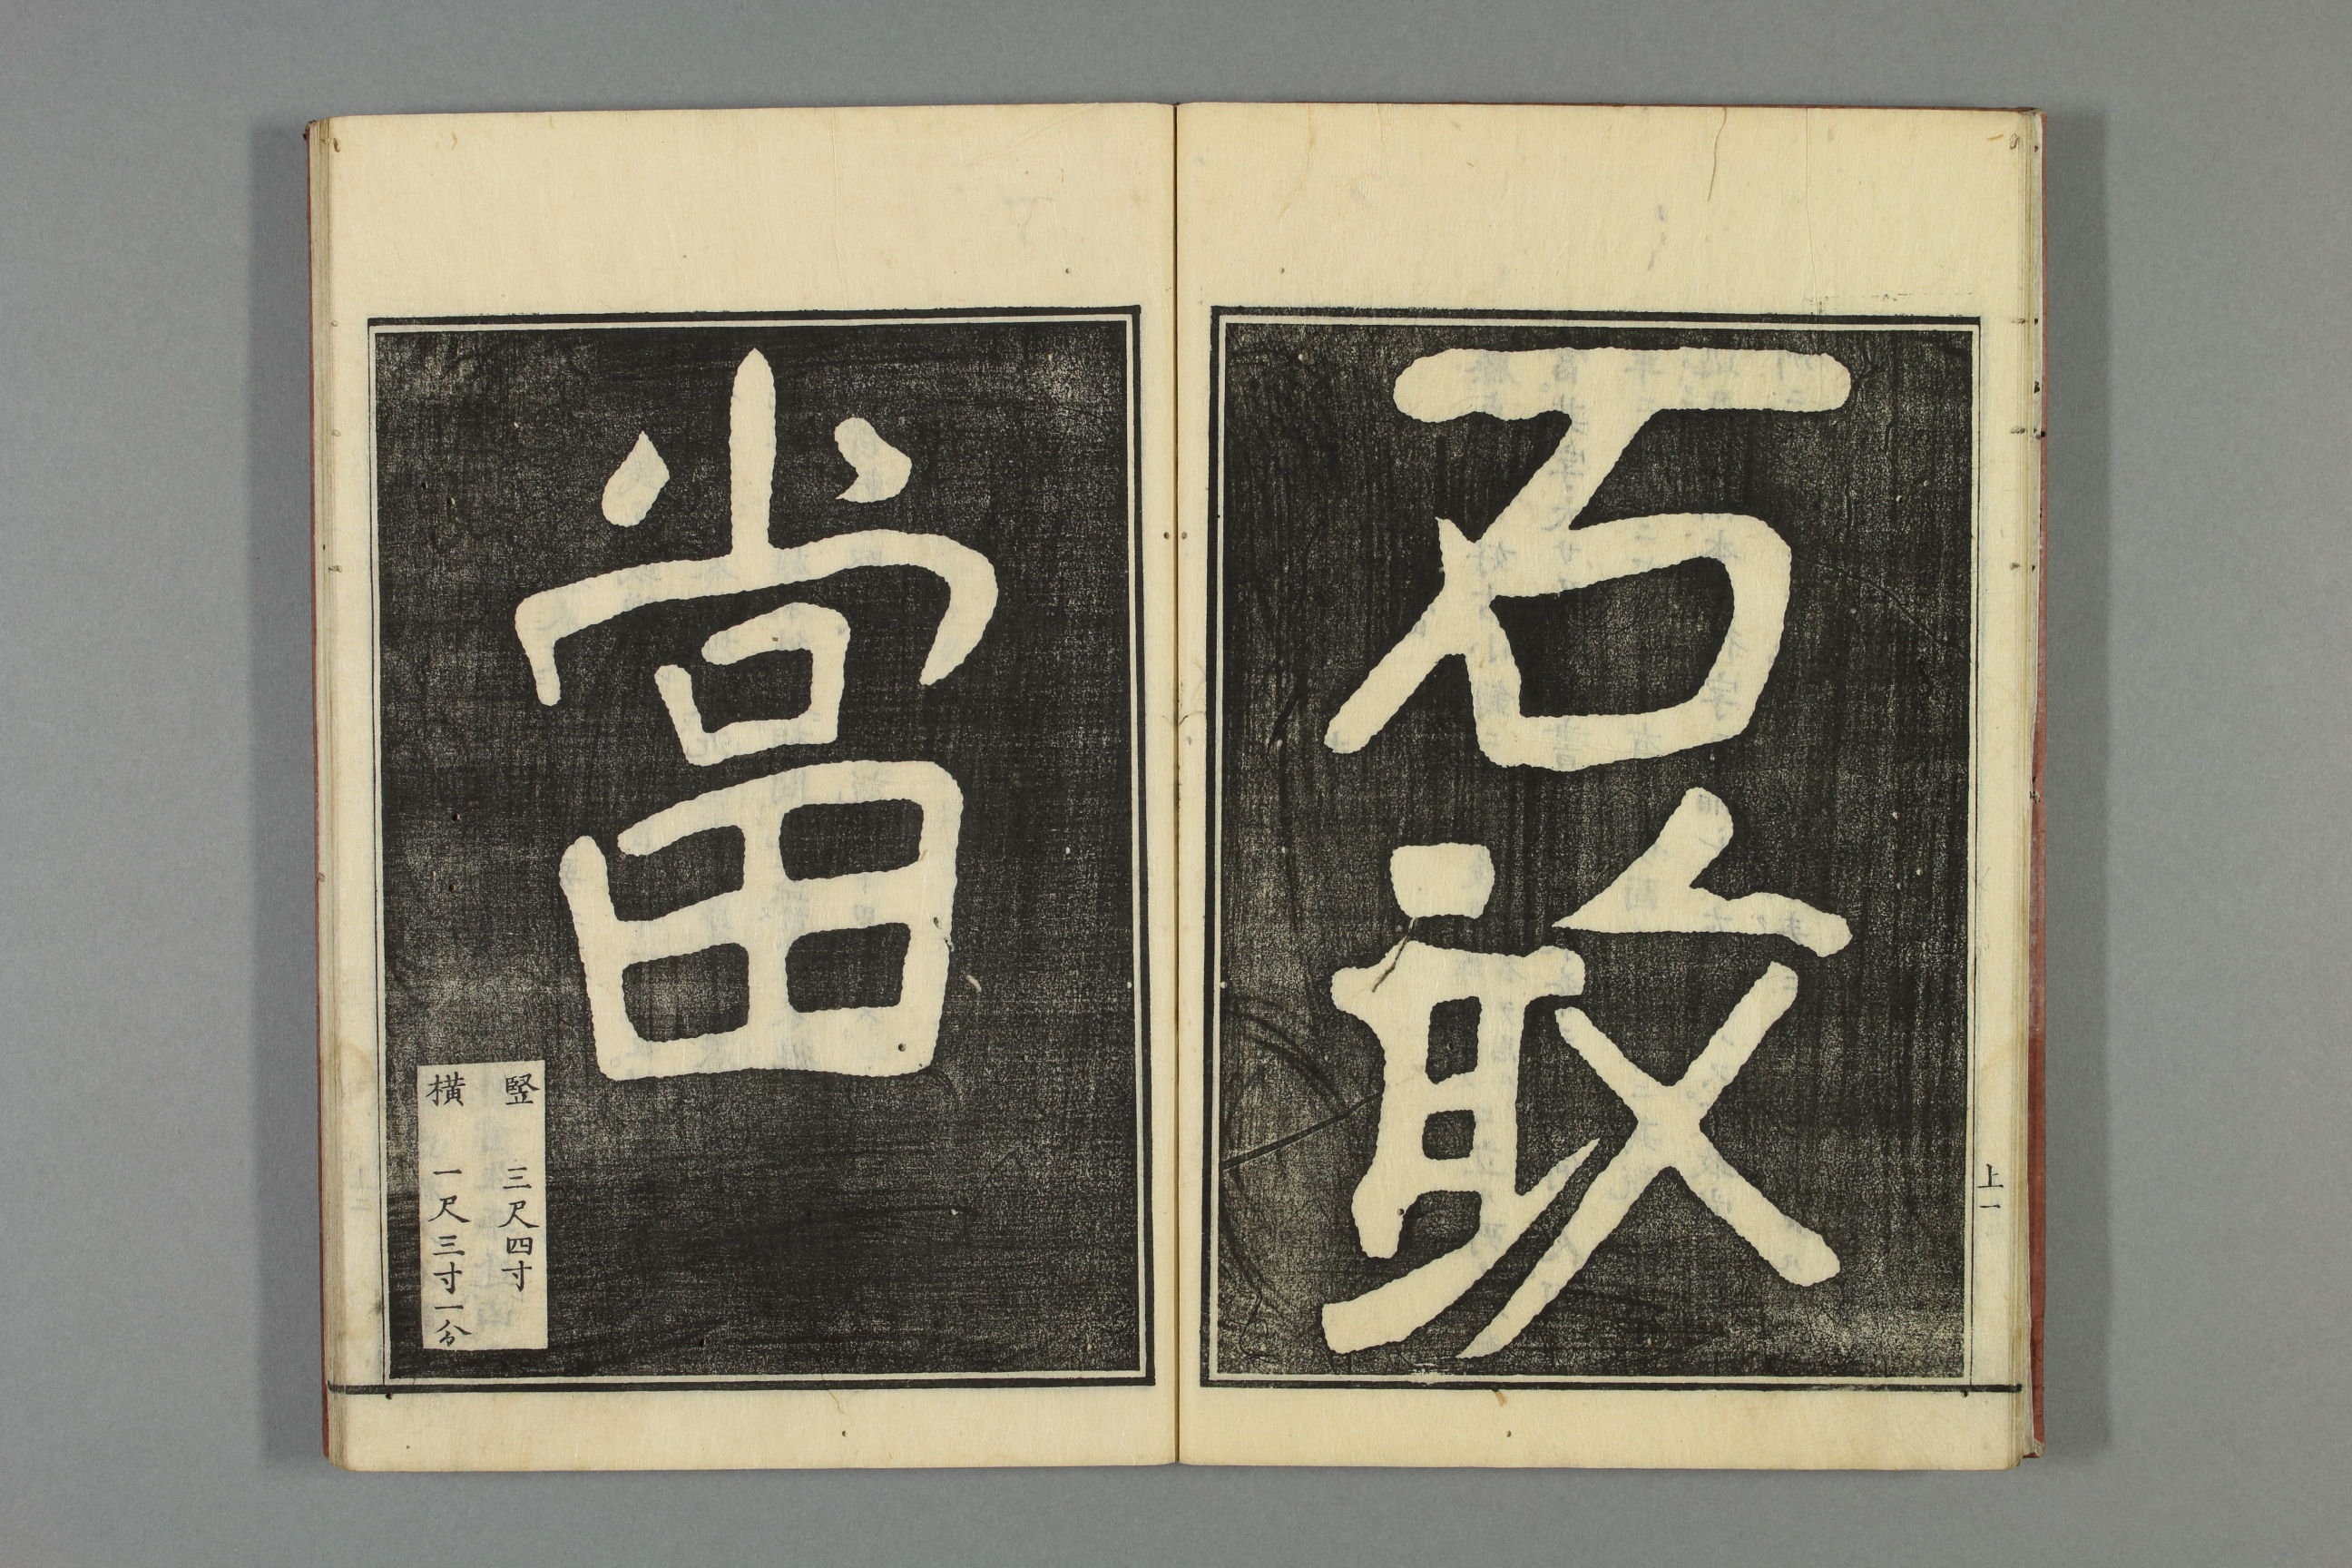 石敢
當
竪 三尺四寸
横 一尺三寸一分
上一